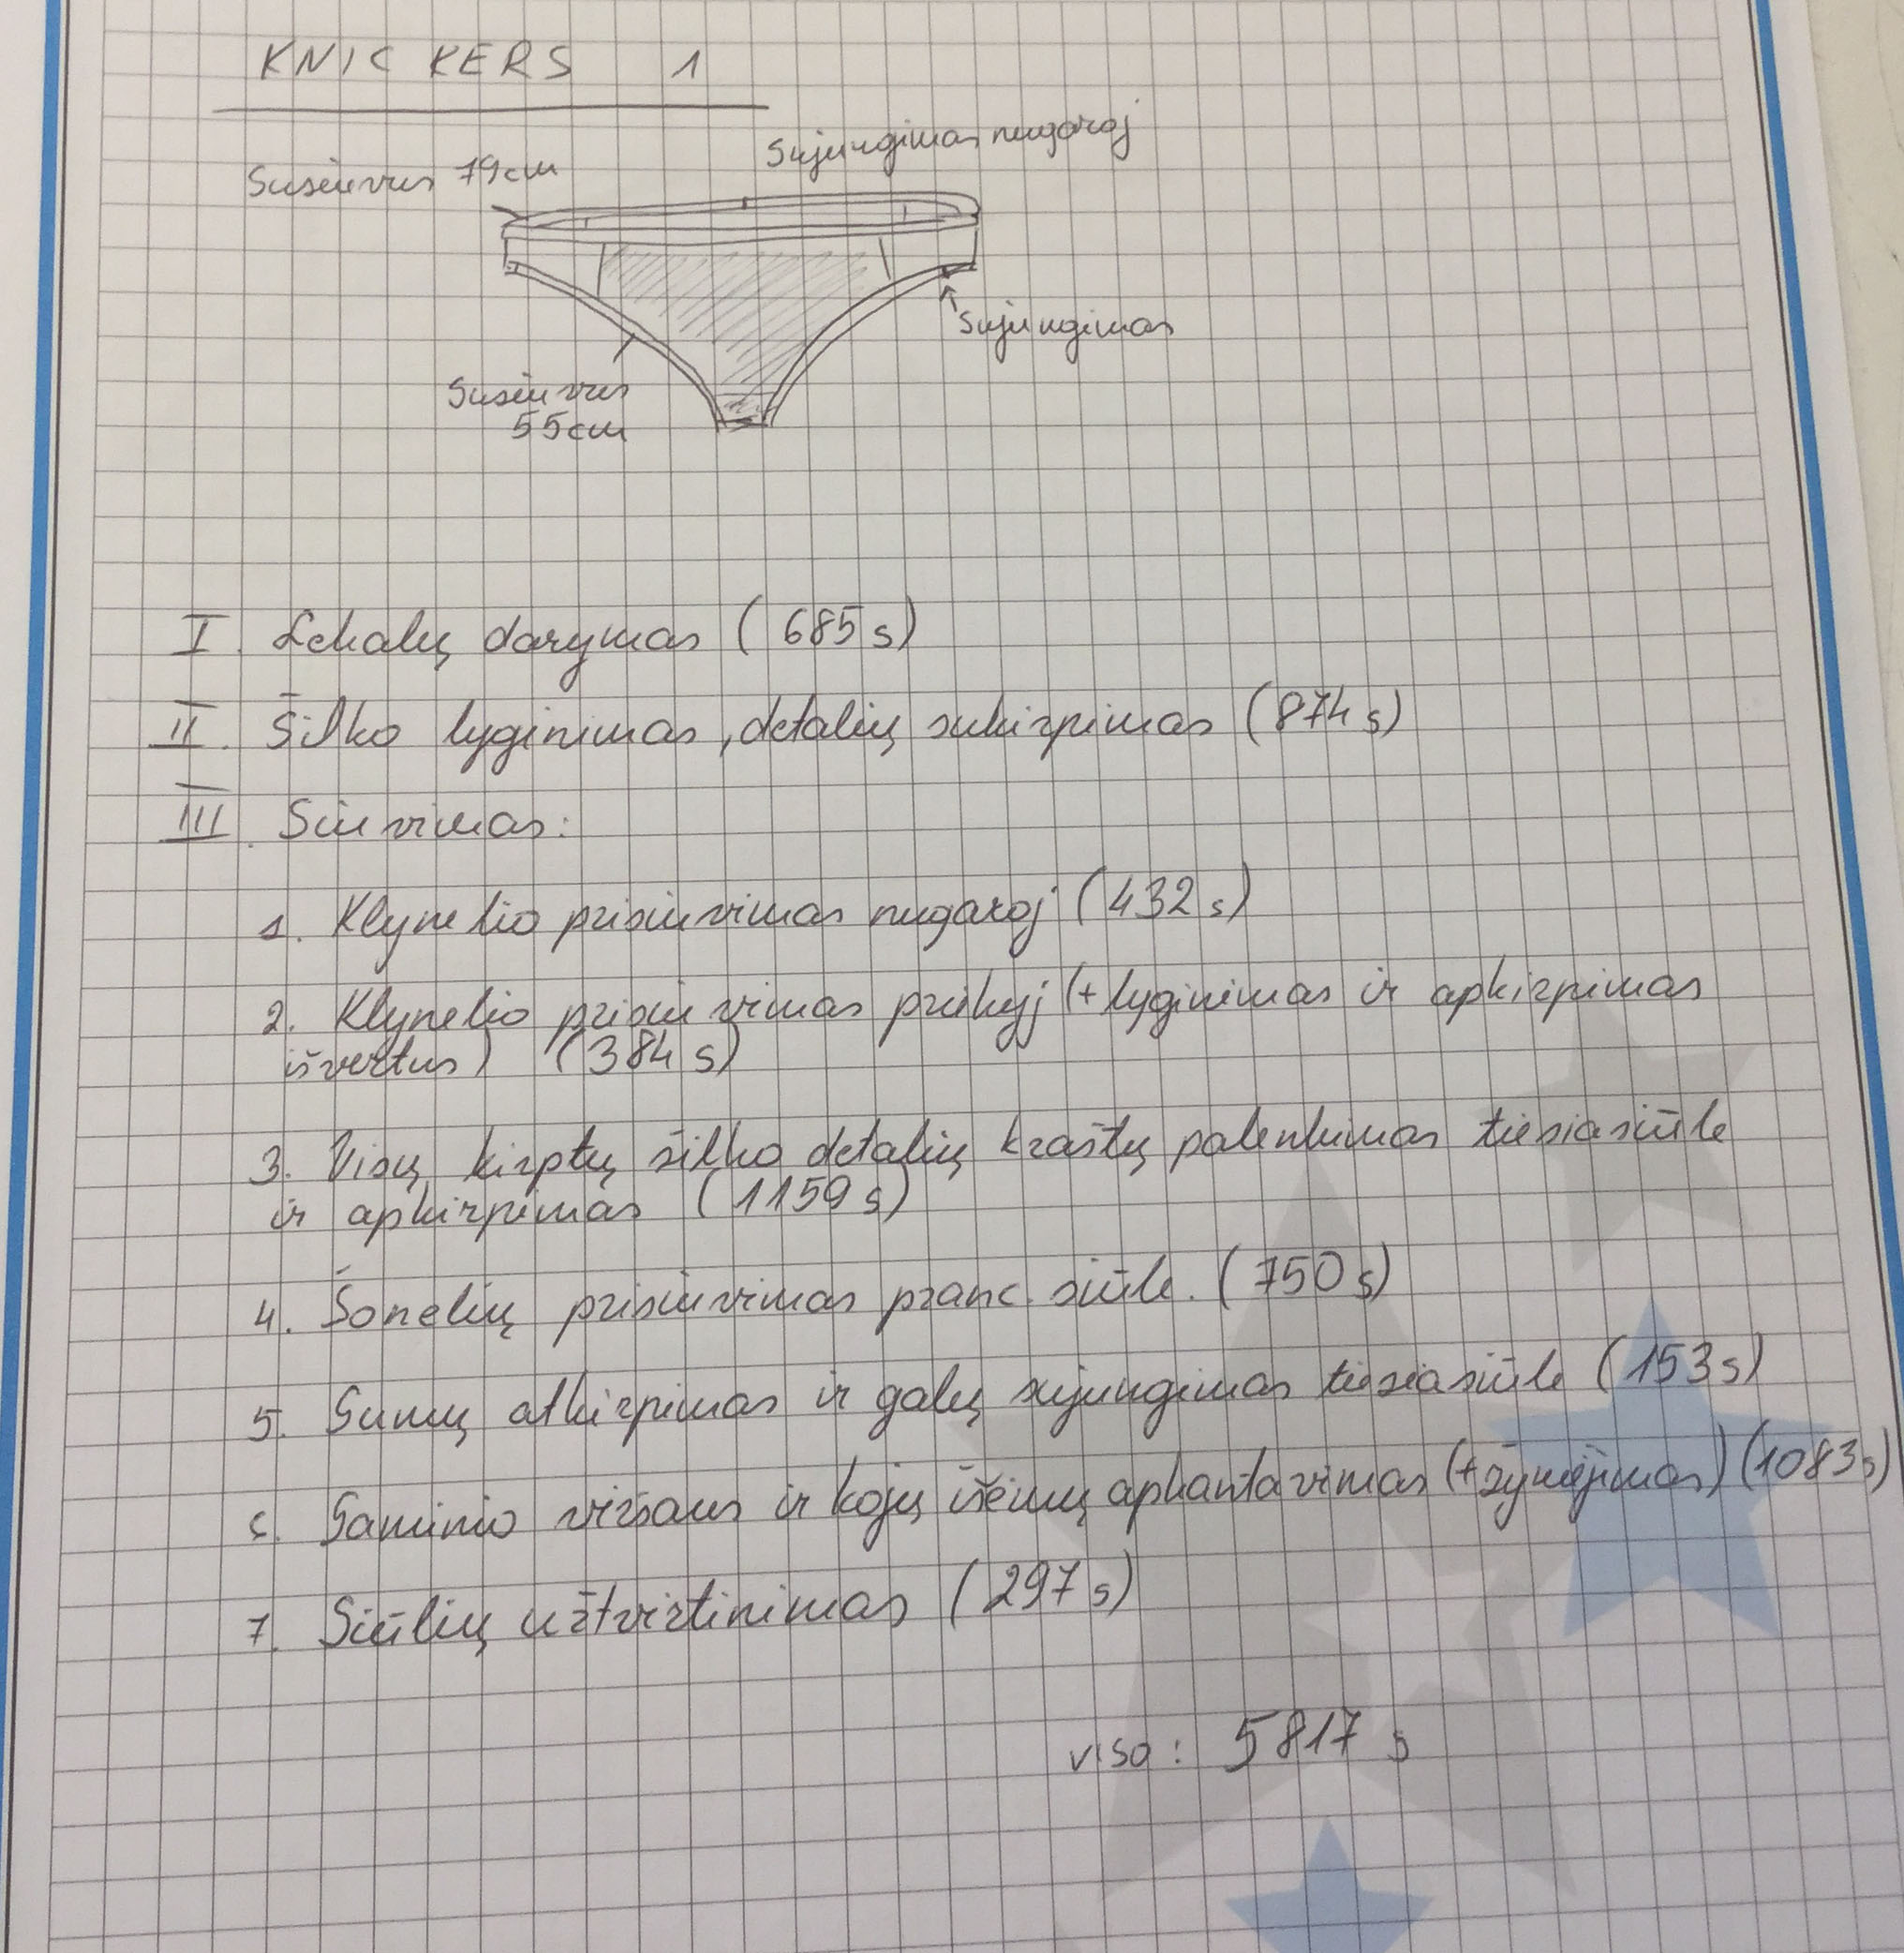 KNICKERS 1
Susiuvus 79cm
Sujungimas nugaroj
Sujungimas
Susiuvus
55cm
I. Lekalų darymas (685 s)
II. Šilko lyginimas, detalių sukirpimas (874 s)
III. Siuvimas:
1. Klynelio prisiuvimas nugaroj (432 s)
2. Klynelio prisiuvimas priekyj (+ lyginimas ir apkirpimas
išvertus) (384 s)
3. Visų kirptų šilko detalių kraštų palenkimas tiesiasiūle
ir apkirpimas (1159 s)
4. Šonelių prisiuvimas pranc. siūle. (750 s)
5. Gumų atkirpimas ir galų sujungimas tiesiasiūle (153 s)
6. Gaminio viršaus ir kojų išėmų apkantavimas (+žymėjimas) (1083 s)
7. Siūlių užtvirtinimas (297 s)
viso: 5817 s